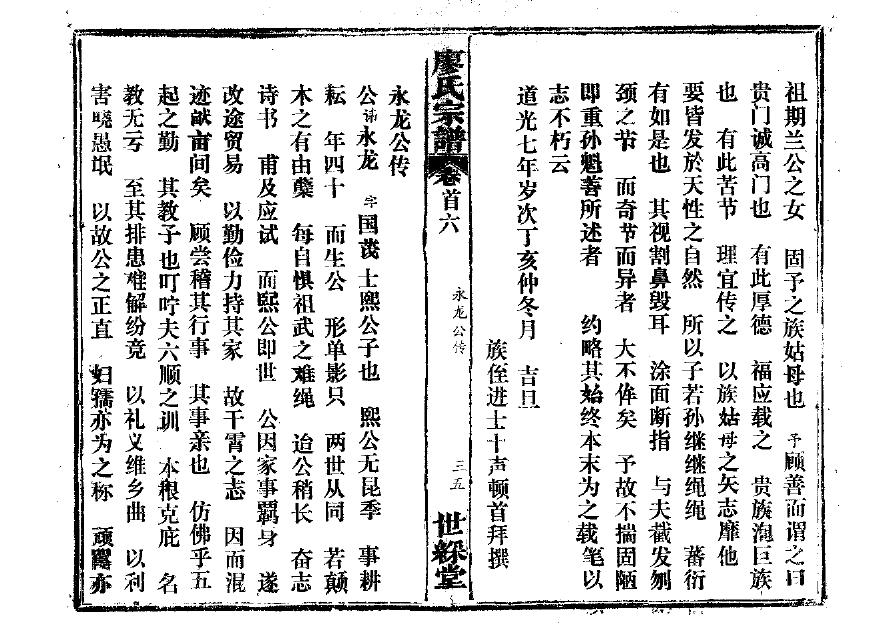 祖期兰公之女　固予之族姑母也　予顾善而谓之曰
贵门诚高门也　有此厚德　福应载之　贵族洵巨族
也　有此苦节　理宜传之　以族姑母之矢志靡他
要皆发於天性之自然　所以子若孙继继绳绳　蕃衍
有如是也　其视割鼻毁耳　涂面断指　与夫截发刎
颈之节　而奇节而异者　大不侔矣　予故不揣固陋
即重孙魁善所述者　约略其始终本末为之载笔以
志不朽云
道光七年岁次丁亥仲冬月　吉旦
族侄进士十声顿首拜撰
廖氏宗譜　卷首六　永龙公传　三五　世䌽堂
永龙公传
公讳永龙　字国发　士熙公子也　熙公无昆季　事耕
耘　年四十　而生公　形单影只　两世从同　若颠
木之有由蘖　每自惧祖武之难绳　迨公稍长　奋志
诗书　甫及应试　而熙公即世　公因家事羁身　遂
改途贸易　以勤俭力持其家　故干霄之志　因而混
迹畎亩间矣　顾尝稽其行事　其事亲也　仿佛乎五
起之勤　其教子也叮咛夫六顺之训　本根克庇　名
教无亏　至其排患难解纷竞　以礼义维乡曲　以利
害晓愚氓　以故公之正直　妇孺亦为之称　顽嚚亦